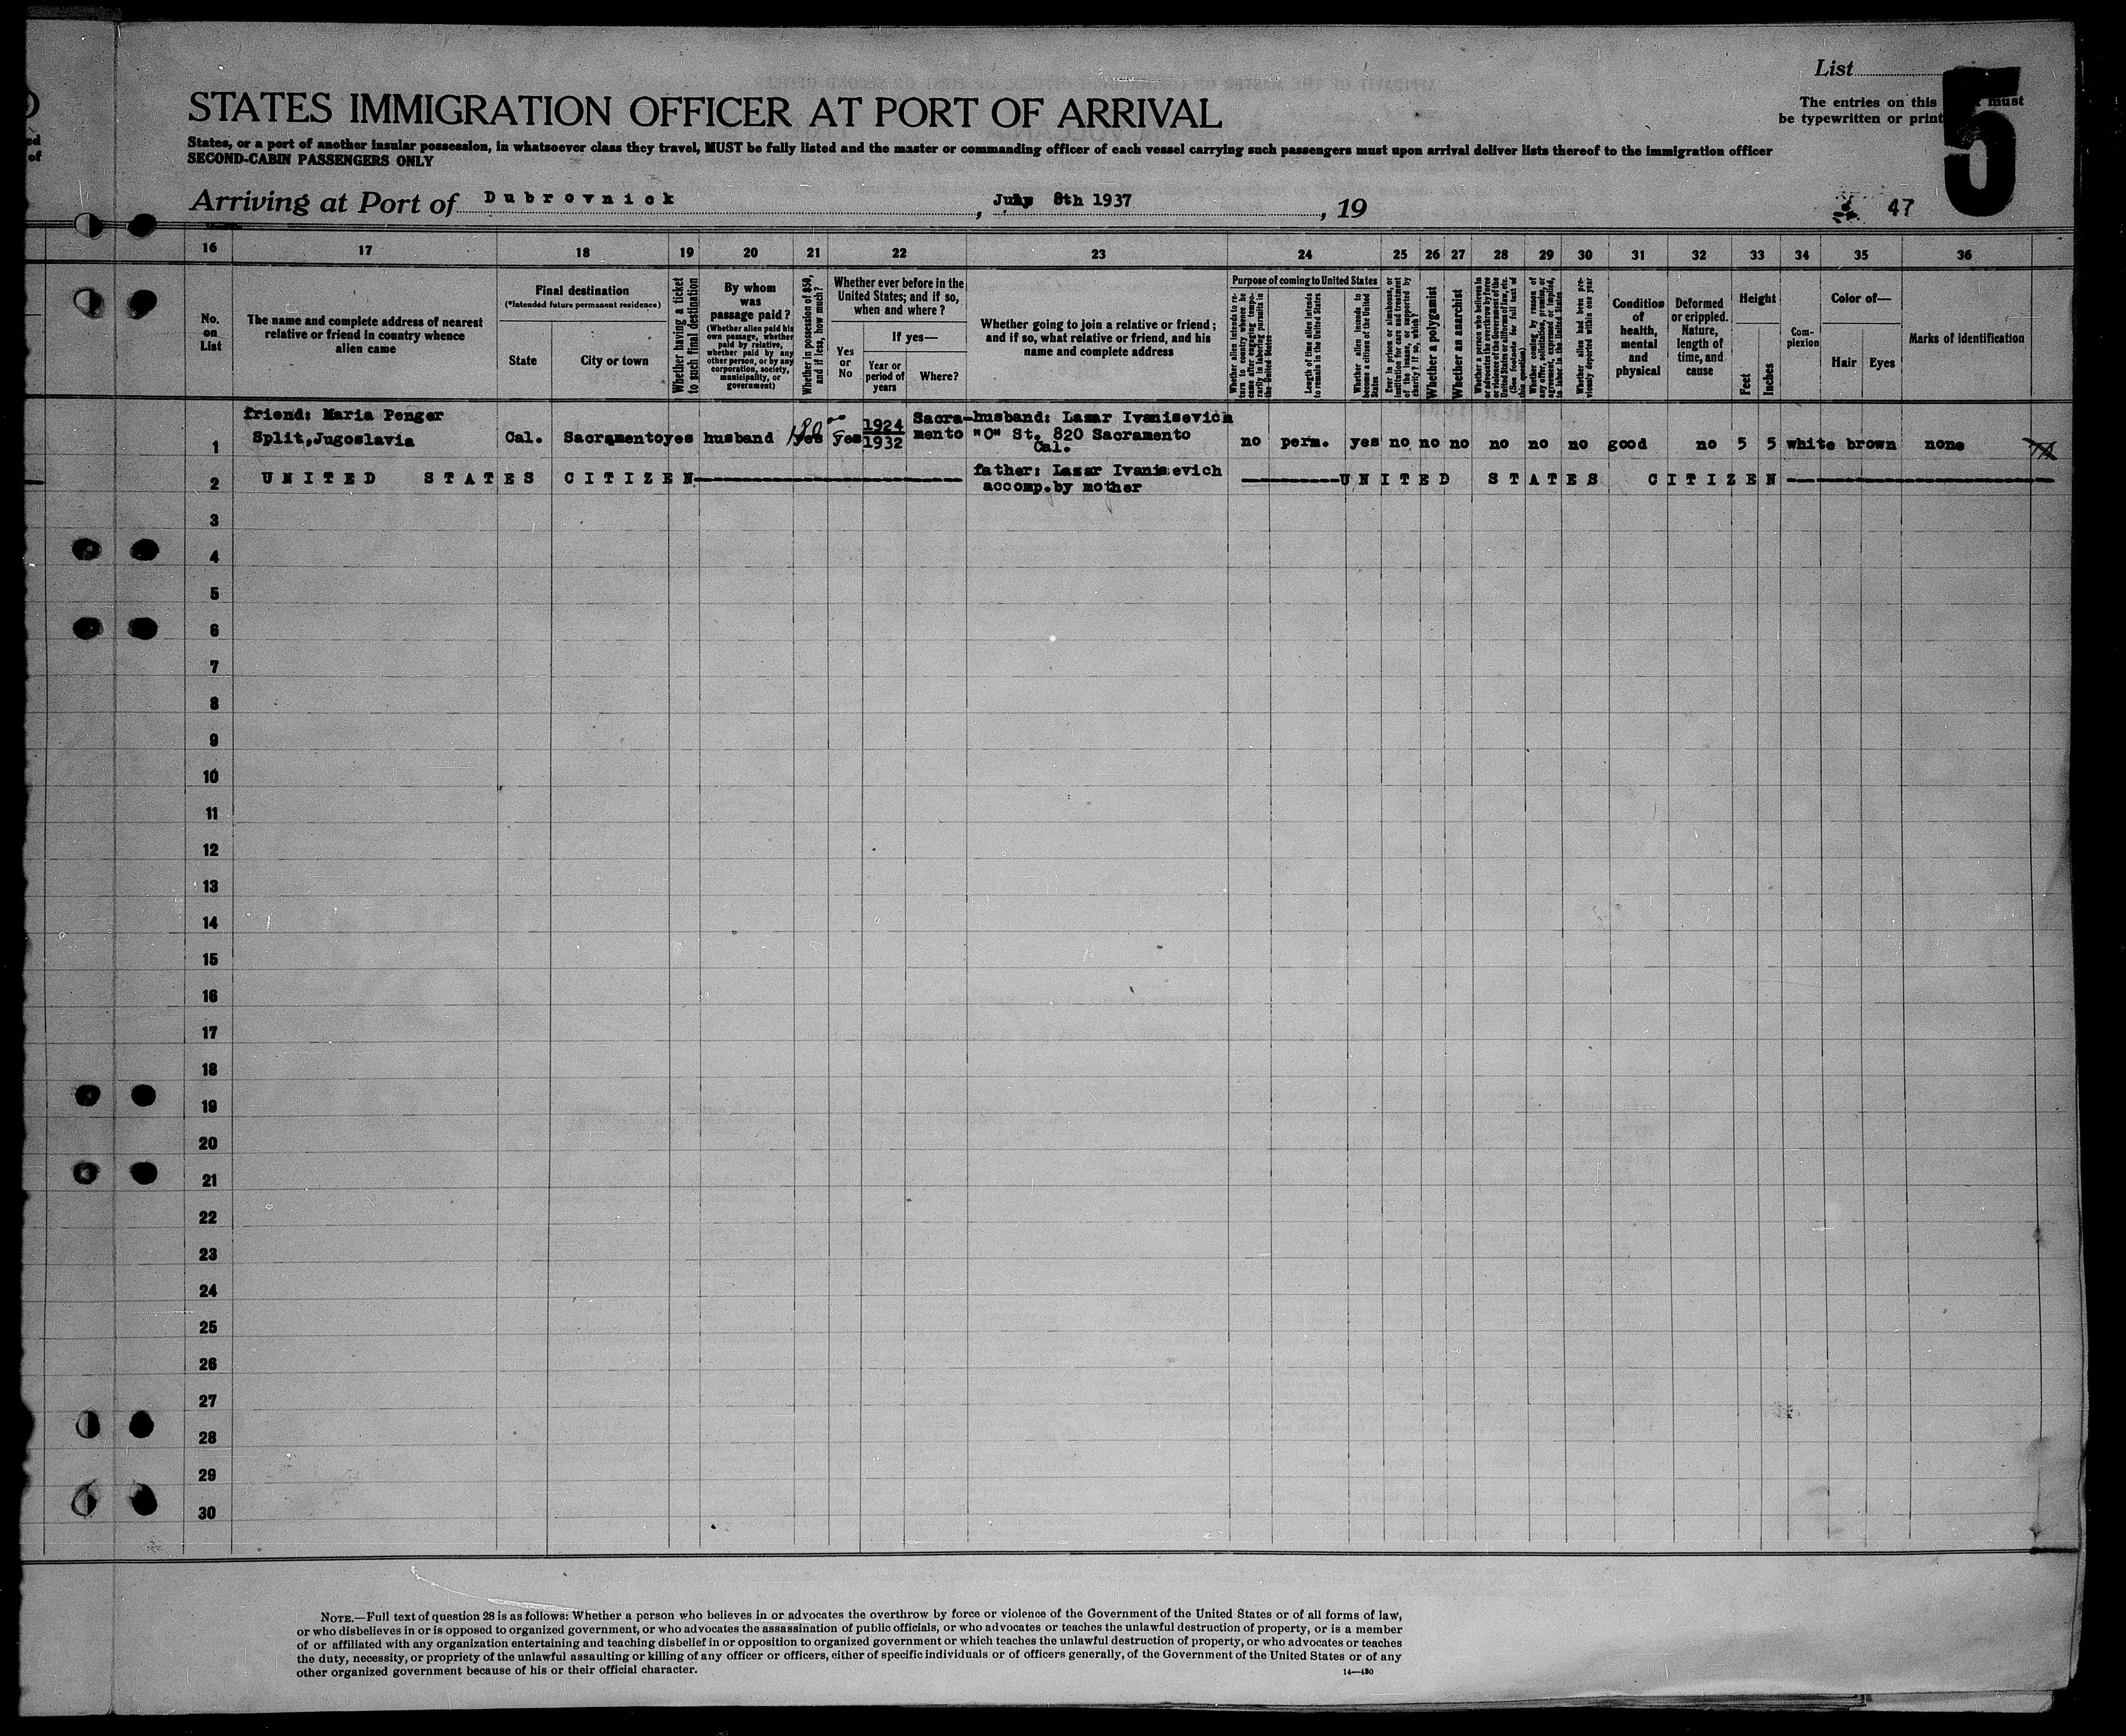 List
5
The entries on this must
be typewritten or print
STATES IMMIGRATION OFFICER AT PORT OF ARRIVAL
ed
of
States, or a port of another insular possession, in whatsoever class they travel, MUST be fully listed and the master or commanding officer of each vessel carrying such passengers must upon arrival deliver lists thereof to the immigration officer
SECOND-CABIN PASSENGERS ONLY
Arriving at Port of Dubrovnick , 8th 1937 , 19
47
16 17 18 19 20 21 22 23 24 25 26 27 28 29 30 31 32 33 34 35 36
No. on List
The name and complete address of nearest relative or friend in country whence alien came
Final destination
(*Intended future permanent residence)
State
City or town
Whether having a ticket to such final destination
By whom was passage paid?
(Whether alien paid his own passage, whether paid by relative, whether paid by any other person, or by any corporation, society, municipality, or government)
Whether in possession of $50, and if less, how much?
Whether ever before in the United States; and if so, when and where?
Yes or No
If yes—
Year or period of years
Where?
Whether going to join a relative or friend; and if so, what relative or friend, and his name and complete address
Purpose of coming to United States
Whether alien intends to return to country whence he came after engaging temporarily in laboring pursuits in the United States
Length of time alien intends to remain in the United States
Whether alien intends to become a citizen of the United States
Ever in prison or almshouse, or institution for care and treatment of the insane, or supported by charity? If so, which?
Whether a polygamist
Whether an anarchist
Whether a person who believes in or advocates the overthrow by force or violence of the Government of the United States or all forms of law, etc. (See footnote for full text of this question)
Whether coming by reason of any offer, solicitation, promise, or agreement, expressed or implied, to labor in the United States
Whether alien had been previously deported within one year
Condition of health, mental and physical
Deformed or crippled. Nature, length of time, and cause
Height
Feet
Inches
Com-plexion
Color of—
Hair
Eyes
Marks of identification
friend: Maria Penger
1 Split,Jugoslavia Cal. Sacramento yes husband yes yes 1924 1932 Sacra-mento husband: Lazar Ivanisevich "O" St. 820 Sacramento Cal. no perm. yes no no no no no no good no 5 5 white brown none
2 UNITED STATES CITIZEN father: Lazar Ivanisevich accomp.by mother UNITED STATES CITIZEN
3
4
5
6
7
8
9
10
11
12
13
14
15
16
17
18
19
20
21
22
23
24
25
26
27
28
29
30
NOTE.—Full text of question 28 is as follows: Whether a person who believes in or advocates the overthrow by force or violence of the Government of the United States or of all forms of law,
or who disbelieves in or is opposed to organized government, or who advocates the assassination of public officials, or who advocates or teaches the unlawful destruction of property, or is a member
of or affiliated with any organization entertaining and teaching disbelief in or opposition to organized government or which teaches the unlawful destruction of property, or who advocates or teaches
the duty, necessity, or propriety of the unlawful assaulting or killing of any officer or officers, either of specific individuals or of officers generally, of the Government of the United States or of any
other organized government because of his or their official character.
14—430